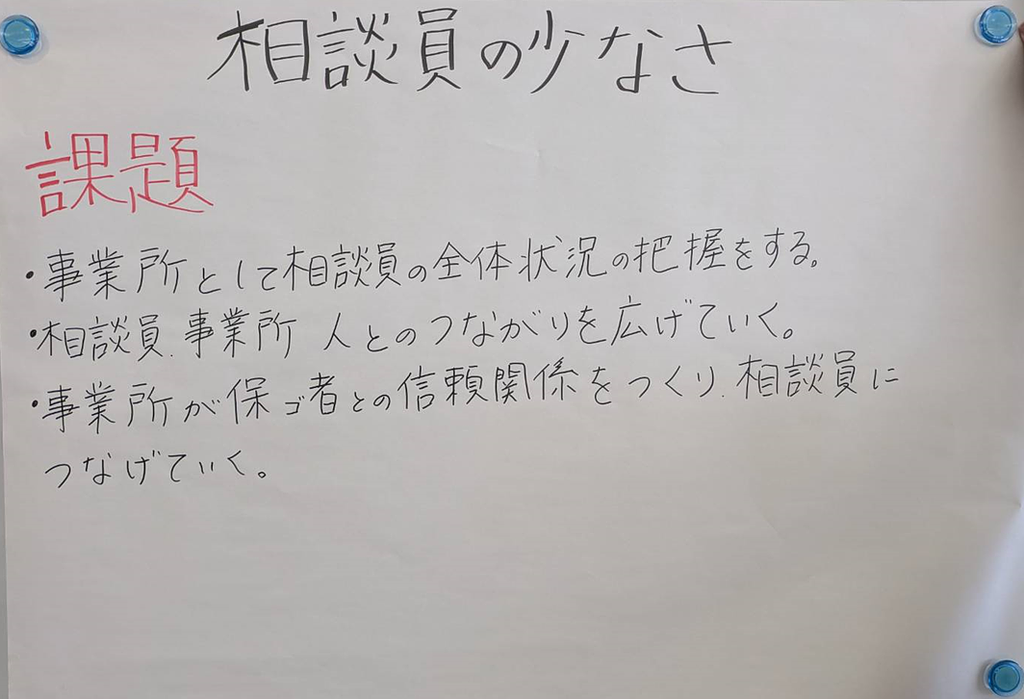 相談員の少なさ
課題
・事業所として相談員の全体状況の把握をする。
・相談員、事業所 人とのつながりを広げていく。
・事業所が保ゴ者との信頼関係をつくり、相談員に
つなげていく。